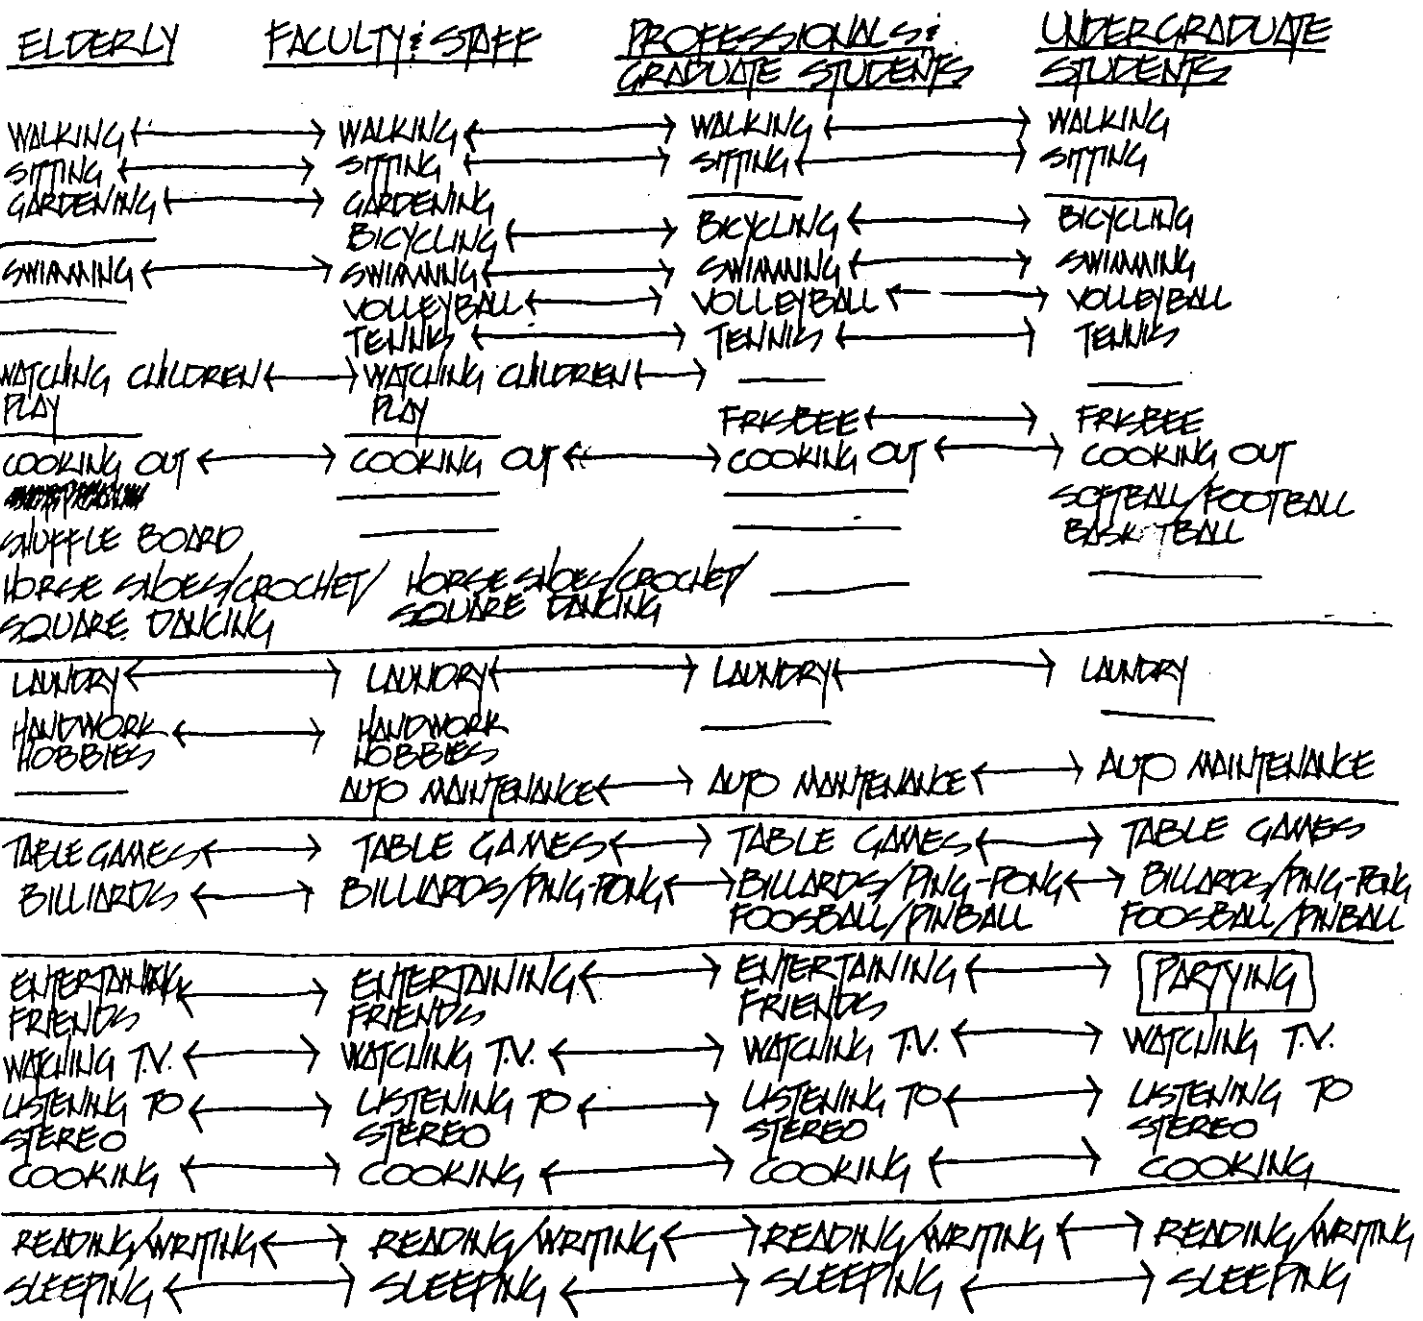 ELDERLY FACULTY & STAFF PROFESSIONALS & UNDERGRADUATE
GRADUATE STUDENTS STUDENTS
WALKING WALKING WALKING WALKING
SITTING SITTING SITTING SITTING
GARDENING GARDENING
BICYCLING BICYCLING BICYCLING
SWIMMING SWIMMING SWIMMING SWIMMING
VOLLEYBALL VOLLEYBALL VOLLEYBALL
TENNIS TENNIS TENNIS
WATCHING CHILDREN WATCHING CHILDREN
PLAY PLAY
FRISBEE FRISBEE
COOKING OUT COOKING OUT COOKING OUT COOKING OUT
SOFTBALL/FOOTBALL
SHUFFLE BOARD BASKETBALL
HORSE SHOES/CROCHET/ HORSE SHOES/CROCHET/
SQUARE DANCING SQUARE DANCING
LAUNDRY LAUNDRY LAUNDRY LAUNDRY
HANDWORK HANDWORK
HOBBIES HOBBIES
AUTO MAINTENANCE AUTO MAINTENANCE AUTO MAINTENANCE
TABLE GAMES TABLE GAMES TABLE GAMES TABLE GAMES
BILLIARDS BILLIARDS/PING-PONG BILLARDS/PING-PONG BILLARDS/PING-PONG
FOOSBALL/PINBALL FOOSBALL/PINBALL
ENTERTAINING ENTERTAINING ENTERTAINING PARTYING
FRIENDS FRIENDS FRIENDS
WATCHING T.V. WATCHING T.V. WATCHING T.V. WATCHING T.V.
LISTENING TO LISTENING TO LISTENING TO LISTENING TO
STEREO STEREO STEREO STEREO
COOKING COOKING COOKING COOKING
READING/WRITING READING/WRITING READING/WRITING READING/WRITING
SLEEPING SLEEPING SLEEPING SLEEPING